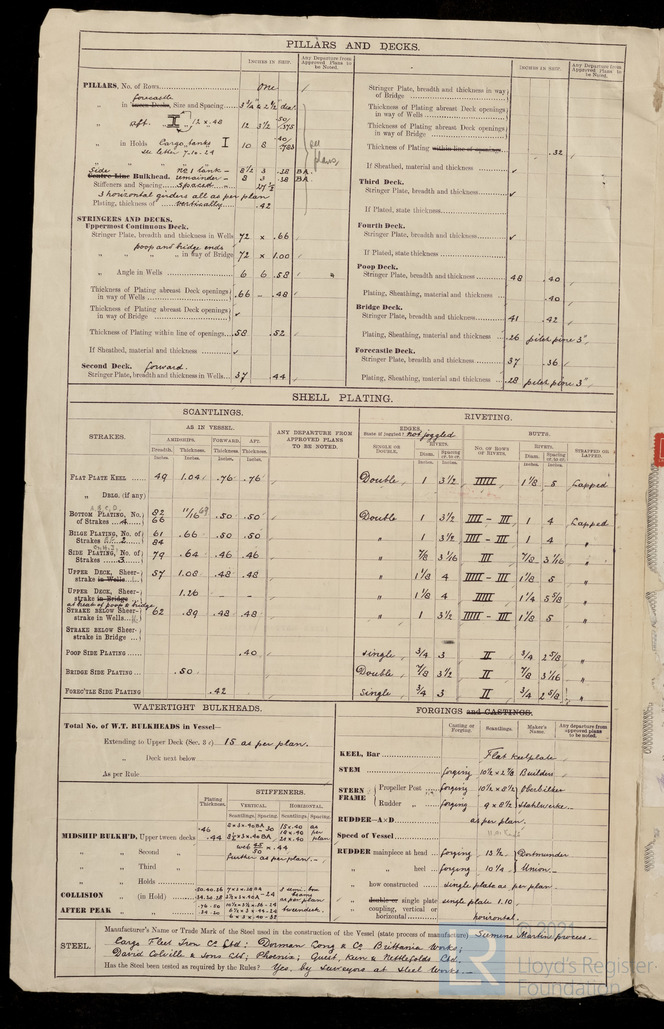 PILLARS AND DECKS.
INCHES IN SHIP.
Any Departure from Approved Plans to be Noted.
PILLARS, No. of Rows one
forecastle
„ in Tween Decks, Size and Spacing 3¼ & 2½ dia
„ aft. „ I 12 x 48 12 3½ .50/.375
„ in Holds Cargo tanks I 10 8
see letter 7.10.24
per plans
Side No 1 tank – 8½ 3 .38 BA
Centre Line Bulkhead. remainder – 8 3 .38 BA
Stiffeners and Spacing spaced 27½
3 horizontal girders all as per plan
Plating, thickness of vertically .42
STRINGERS AND DECKS.
Uppermost Continuous Deck.
Stringer Plate, breadth and thickness in Wells 72 x .66
poop and bridge ends
„ „ „ „ in way of Bridge 72 x 1.00
„ Angle in Wells 6 6 .58
Thickness of Plating abreast Deck openings in way of Wells .66 – .48
Thickness of Plating abreast Deck openings in way of Bridge
Thickness of Plating within line of openings .58 .52
If Sheathed, material and thickness
Second Deck. forward.
Stringer Plate, breadth and thickness in Wells 37 .44
INCHES IN SHIP.
Any Departure from Approved Plans to be Noted.
Stringer Plate, breadth and thickness in way of Bridge
Thickness of Plating abreast Deck openings in way of Wells
Thickness of Plating abreast Deck openings in way of Bridge
Thickness of Plating within line of openings .32
If Sheathed, material and thickness
Third Deck.
Stringer Plate, breadth and thickness
If Plated, state thickness
Fourth Deck.
Stringer Plate, breadth and thickness
If Plated, state thickness
Poop Deck.
Stringer Plate, breadth and thickness 48 .40
Plating, Sheathing, material and thickness .40
Bridge Deck.
Stringer Plate, breadth and thickness 41 .42
Plating, Sheathing, material and thickness .26 pitch pine 3"
Forecastle Deck.
Stringer Plate, breadth and thickness 37 .36
Plating, Sheathing, material and thickness .28 pitch pine 3"
SHELL PLATING.
SCANTLINGS.
RIVETING.
STRAKES.
AS IN VESSEL.
AMIDSHIPS. FORWARD. AFT.
Breadth. Thickness. Thickness. Thickness.
Inches. Inches. Inches. Inches.
ANY DEPARTURE FROM APPROVED PLANS TO BE NOTED.
EDGES.
State if joggled? not joggled
SINGLE OR DOUBLE.
RIVETS.
Diam. Spacing cr. to cr.
Inches. Inches.
BUTTS.
NO. OF ROWS OF RIVETS.
RIVETS.
Diam. Spacing cr. to cr.
Inches. Inches.
STRAPPED OR LAPPED.
FLAT PLATE KEEL 49 1.04 .76 .76 Double 1 3½ IIIII 1⅛ 5 Lapped
„ DBLG. (if any)
BOTTOM PLATING, No. of Strakes 4 82 66 11/16 .69 .50 .50 Double 1 3½ IIII – III 1 4 Lapped
BILGE PLATING, No. of Strakes 2 61 84 .66 .50 .50 „ 1 3½ IIII – III 1 4 „
SIDE PLATING, No. of Strakes 3 79 .64 .46 .46 „ ⅞ 3 1/16 III ⅞ 3 1/16 „
UPPER DECK, Sheerstrake in Wells 57 1.08 .48 .48 „ 1⅛ 4 IIIII – III 1⅛ 5 „
UPPER DECK, Sheerstrake in Bridge 1.26 – – „ 1⅛ 4 IIIII 1¼ 5⅝ „
at break of poop & bridge
STRAKE BELOW Sheerstrake in Wells 62 .89 .48 .48 „ 1 3½ IIIII – III 1⅛ 5 „
STRAKE BELOW Sheerstrake in Bridge
POOP SIDE PLATING .40 single ¾ 3 II ¾ 2⅝ „
BRIDGE SIDE PLATING .50 Double ⅞ 3½ II ⅞ 3 1/16 „
FOREC'TLE SIDE PLATING .42 Single ¾ 3 II ¾ 2⅝ „
WATERTIGHT BULKHEADS.
Total No. of W.T. BULKHEADS in Vessel—
Extending to Upper Deck (Sec. 3 c) 15 as per plan.
„ Deck next below
As per Rule
Plating Thickness.
STIFFENERS.
VERTICAL. HORIZONTAL.
Scantlings. Spacing. Scantlings. Spacing.
MIDSHIP BULKH'D, Upper tween decks .46 .44
„ „ Second „ further as per plan.
„ „ Third „
„ „ Holds
COLLISION „ (in Hold)
AFTER PEAK „
FORGINGS and CASTINGS.
Casting or Forging. Scantlings. Maker's Name. Any departure from approved plans to be noted.
KEEL, Bar Flat keelplate
STEM forging 10½ x 2⅞ Builders
STERN FRAME Propeller Post forging 10½ x 8½ Oberbilker
Rudder „ forging 9 x 8½ Stahlwerke
RUDDER—A×D as per plan.
Speed of Vessel
RUDDER mainpiece at head forging 13½ Dortmunder
„ „ heel forging 10¼ Union
„ how constructed single plate as per plan.
„ double or single plate single plate 1.10
coupling, vertical or horizontal horizontal.
STEEL.
Manufacturer's Name or Trade Mark of the Steel used in the construction of the Vessel (state process of manufacture) Siemens Martin process.
Cargo Fleet Iron Co Ltd: Dorman Long & Co Brittania Works;
David Colville & Sons Ltd; Phoenix; Guest, Keen & Nettlefolds Ltd.
Has the Steel been tested as required by the Rules? Yes, by Surveyors at Steel Works.
© 2021
LR
Lloyd's Register
Foundation